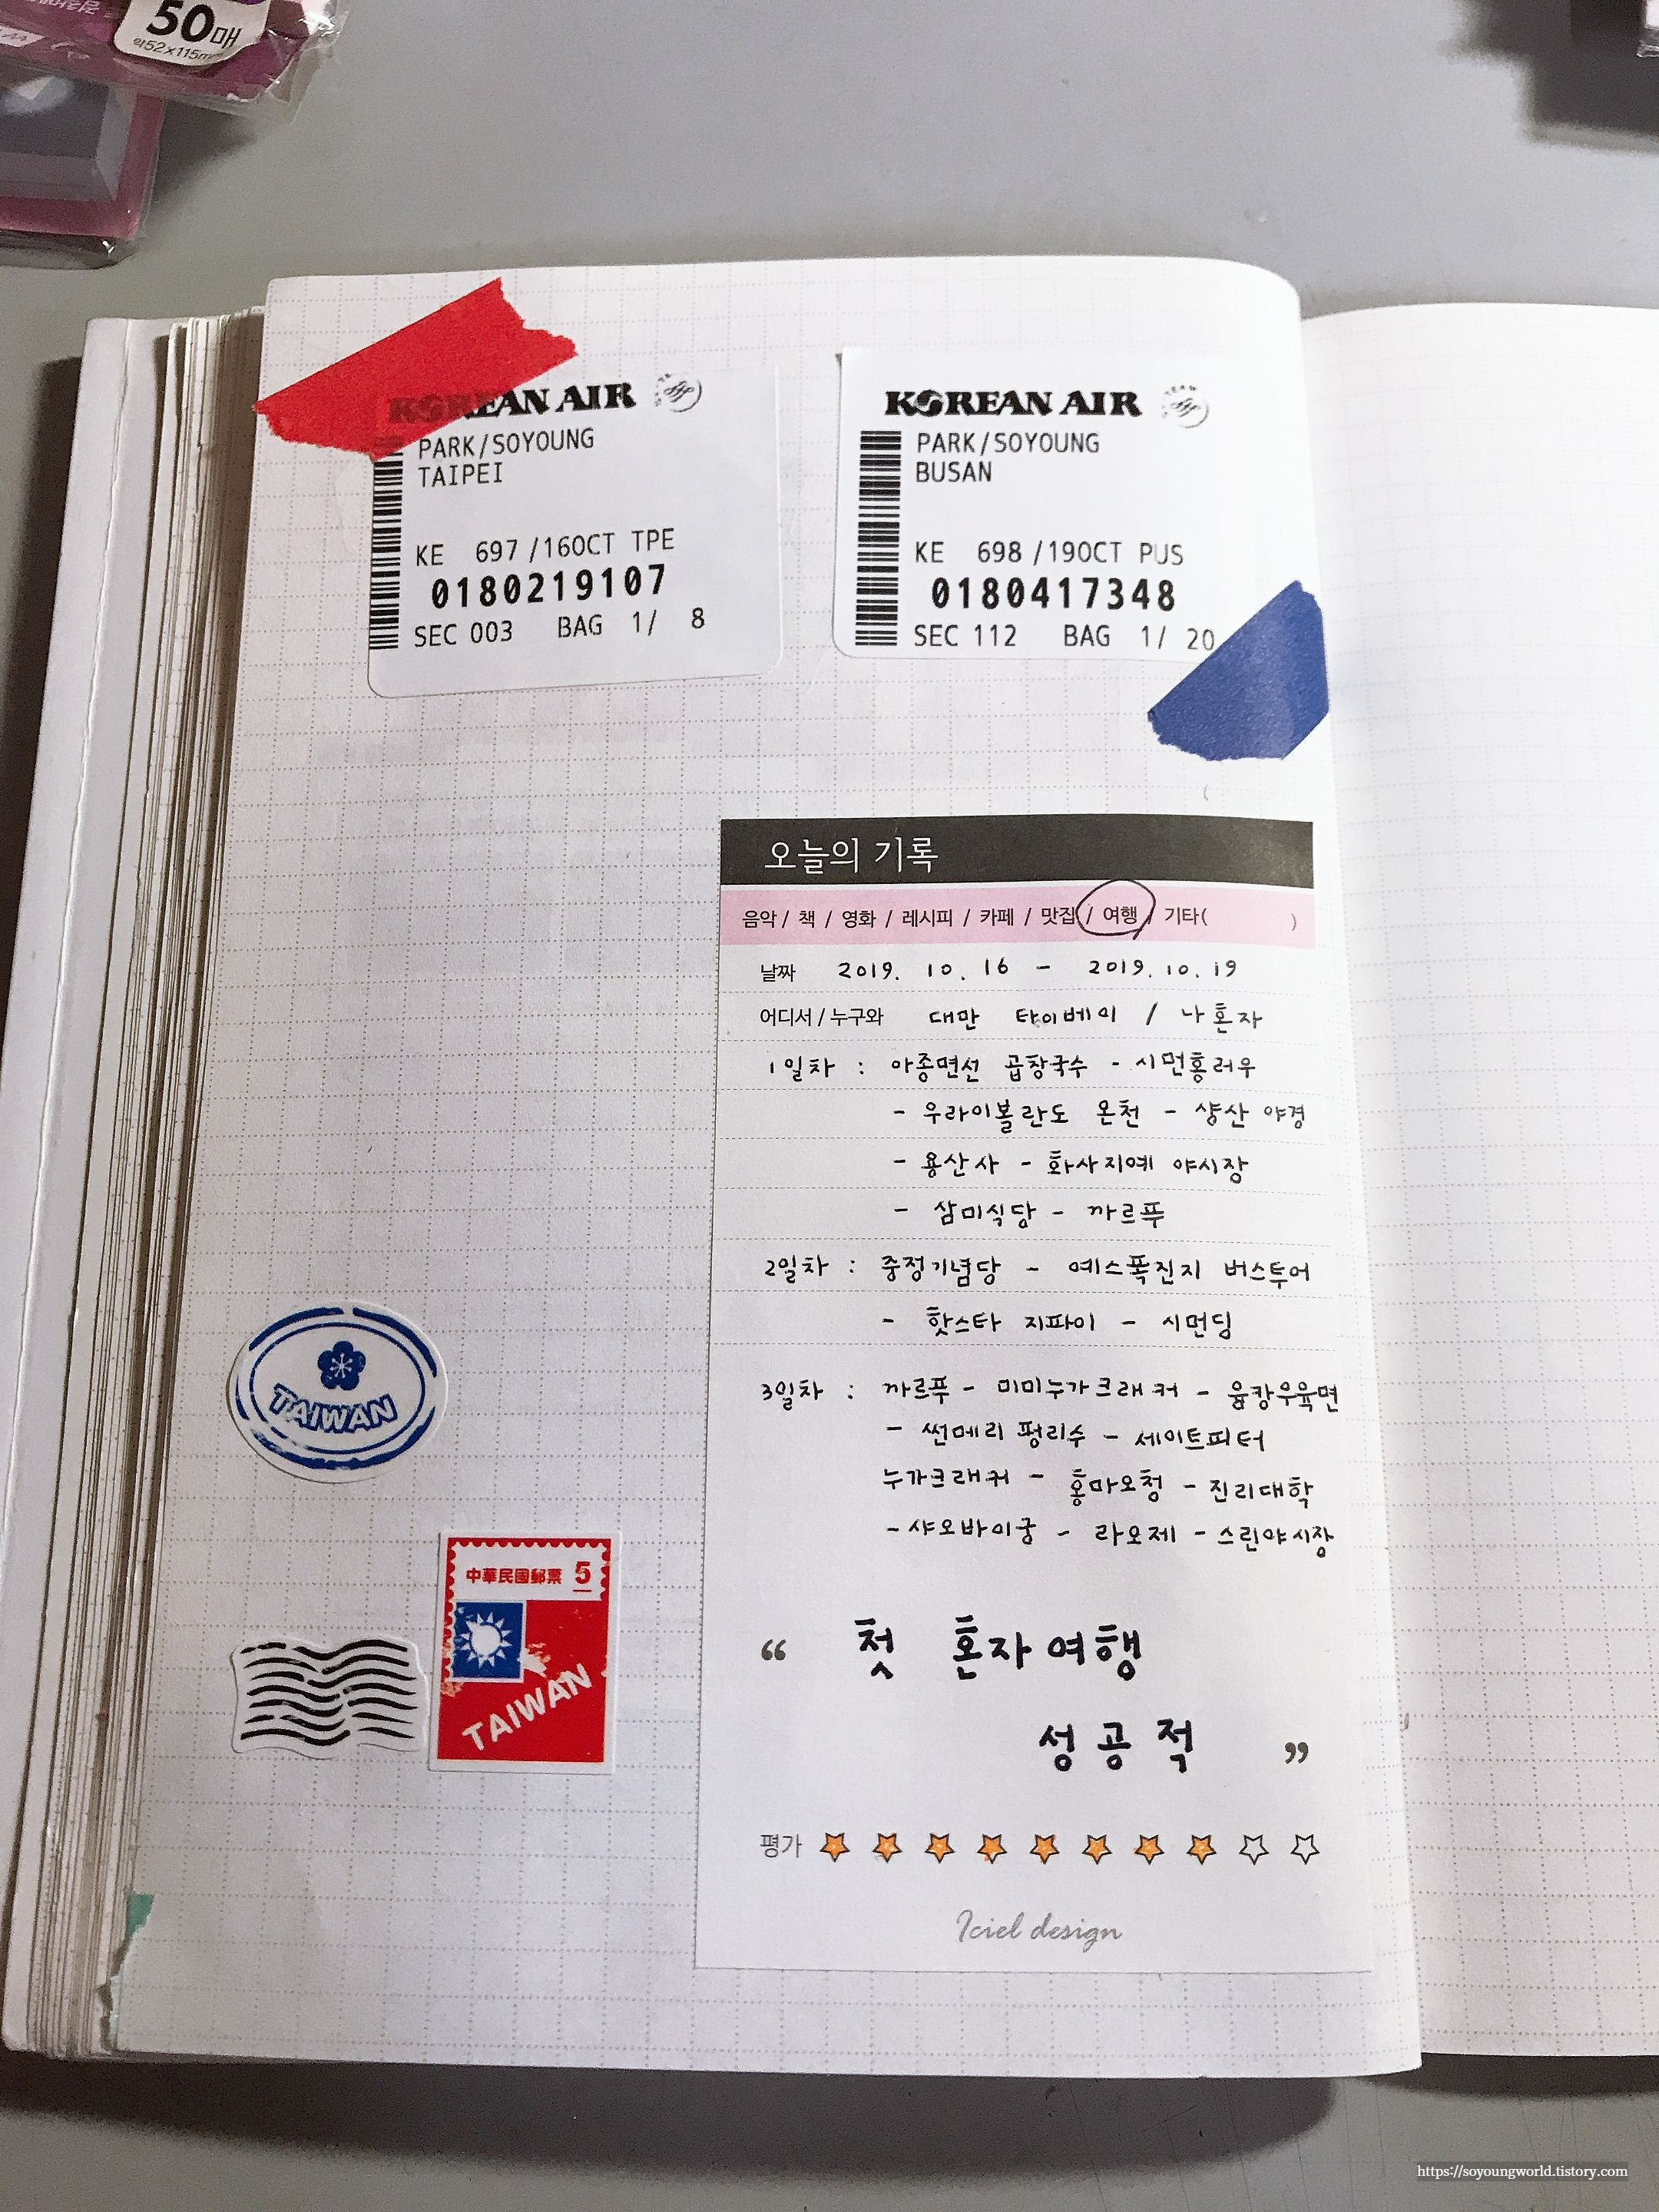 50매
약52x115mm
KOREAN AIR
PARK/SOYOUNG
TAIPEI
KE 697 /16OCT TPE
0180219107
SEC 003 BAG 1/ 8
KOREAN AIR
PARK/SOYOUNG
BUSAN
KE 698 /19OCT PUS
0180417348
SEC 112 BAG 1/ 20
오늘의 기록
음악 / 책 / 영화 / 레시피 / 카페 / 맛집 / 여행 / 기타( )
날짜 2019. 10. 16 - 2019. 10. 19
어디서 / 누구와 대만 타이베이 / 나혼자
1일차 : 아종면선 곱창국수 - 시먼홍러우
- 우라이볼란도 온천 - 샹산 야경
- 용산사 - 화사지예 야시장
- 삼미식당 - 까르푸
2일차 : 중정기념당 - 예스폭진지 버스투어
- 핫스타 지파이 - 시먼딩
3일차 : 까르푸 - 미미누가크래커 - 융캉우육면
- 썬메리 펑리수 - 세인트피터
누가크래커 - 홍마오청 - 진리대학
- 샤오바이궁 - 라오제 - 스린야시장
“ 첫 혼자여행
성공적 ”
평가
Iciel design
TAIWAN
中華民國郵票 5
TAIWAN
https://soyoungworld.tistory.com